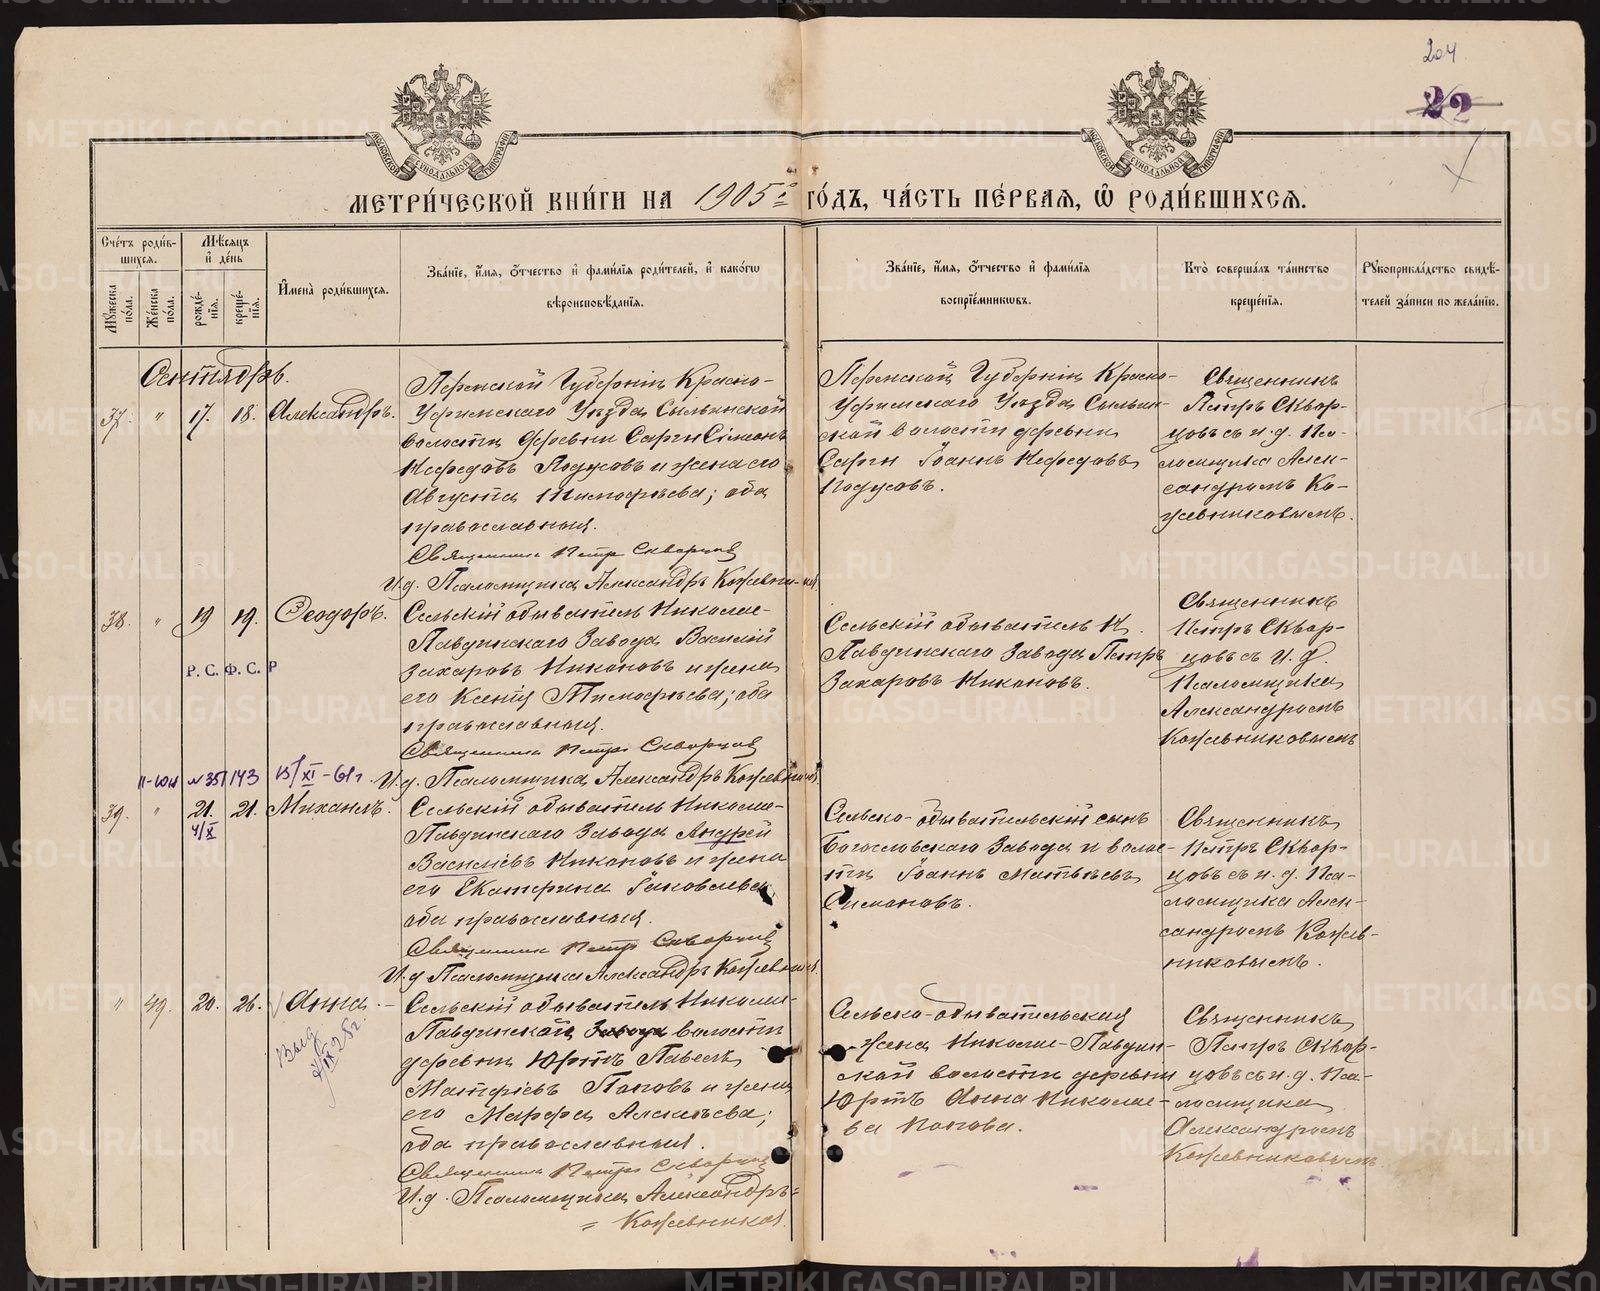 204
22
МЕТРИ́ЧЕСКОЙ КНИ́ГИ НА 1905й ГО́ДЪ, ЧА́СТЬ ПЕ́РВАЯ, Ѽ РОДИ́ВШИХСЯ.
Сче́тъ роди́вшихся.
Мꙋ́жеска по́ла.
Же́нска по́ла.
Мѣ́сяцъ и҆ де́нь
рожде́нїя.
креще́нїя.
И҆мена̀ роди́вшихся.
Зва́нїе, и҆́мя, ѻ҆́тчество и҆ фами́лїя роди́телей, и҆ како́гѡ
вѣроисповѣ́данїя.
Зва́нїе, и҆́мя, ѻ҆́тчество и҆ фами́лїя
воспрїе́мникѡвъ.
Кто̀ соверша́лъ та́инство
креще́нїя.
Рꙋкоприкла́дство свидѣ́-
телей за́писи по жела́нїю.
Сентябрь.
37. " 17. 18. Александръ.
Пермской Губерніи Красно-
Уфимскаго Уѣзда Сыльинской
волости деревни Сарги Симеонъ
Нефедовъ Подусовъ и жена его
Августа Тимофѣева; оба
православныя.
Священник Петр Скворцов
И.д. Псаломщика Александръ Кожевников
Пермской Губерніи Красно-
Уфимскаго Уѣзда Сыльин-
ской волости деревни
Сарги Іоаннъ Нефедовъ
Подусовъ.
Священникъ
Петръ Сквор-
цовъ съ и.д. Пса-
ломщика Алек-
сандромъ Ко-
жевниковымъ.
38. " 19 19. Ѳеодоръ.
Р. С. Ф. С. Р
Сельскій обыватель Николае-
Павдинскаго Завода Василій
Захаровъ Никоновъ и жена
его Ксенія Тимофѣева; оба
православныя.
Священник Петр Скворцов
И.д. Псаломщика Александръ Кожевников
Сельскій обыватель Н.
Павдинскаго Завода Петръ
Захаровъ Никоновъ.
Священникъ
Петръ Сквор-
цовъ съ И.д.
Псаломщика
Александромъ
Кожевниковымъ
II-ЮИ № 351143 15/XI-61г.
39. " 21. 21. Михаилъ.
4/X
Сельскій обыватель Николае-
Павдинскаго Завода Андрей
Василіевъ Никоновъ и жена
его Екатерина Іаковлева
оба православныя.
Священник Петр Скворцов
И.д Псаломщика Александръ Кожевников
Сельско-обывательскій сынъ
Богословскаго Завода и волос-
ти Іоаннъ Матвѣевъ
Симоновъ.
Священникъ
Петръ Сквор-
цовъ съ и.д. Пса-
ломщика Алек-
сандромъ Кожев-
никовымъ.
" 49. 20. 26. Анна.
Выд
IX 28г
Сельскій обыватель Николае-
Павдинской Завода волости
деревни Юртъ Павелъ
Матфіевъ Поповъ и жена
его Марфа Алексѣева;
оба православныя.
Священник Петр Скворцов
И.д. Псаломщика Александръ=
= Кожевников
Сельско-обывательская
жена Николае-Павдин-
ской волости деревни
Юртъ Анна Николае-
ва Попова.
Священникъ
Петръ Сквор-
цовъ съ и.д. Пса-
ломщика
Александромъ
Кожевниковымъ
METRIKI.GASO-URAL.RU